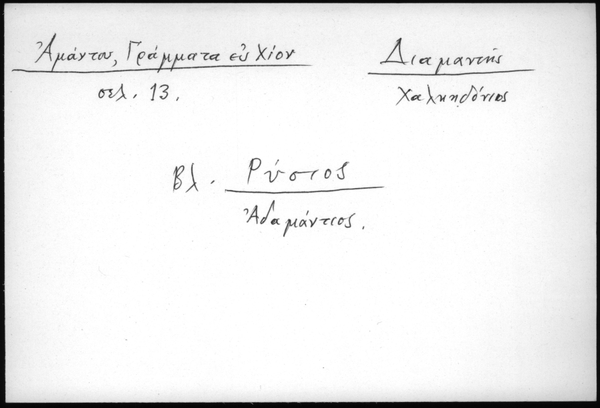 Ἀμάντου, Γράμματα εἰς Χίον
σελ. 13.
Διαμαντής
Χαλκηδόνιος
Βλ. Ρύσιος
Ἀδαμάντιος.